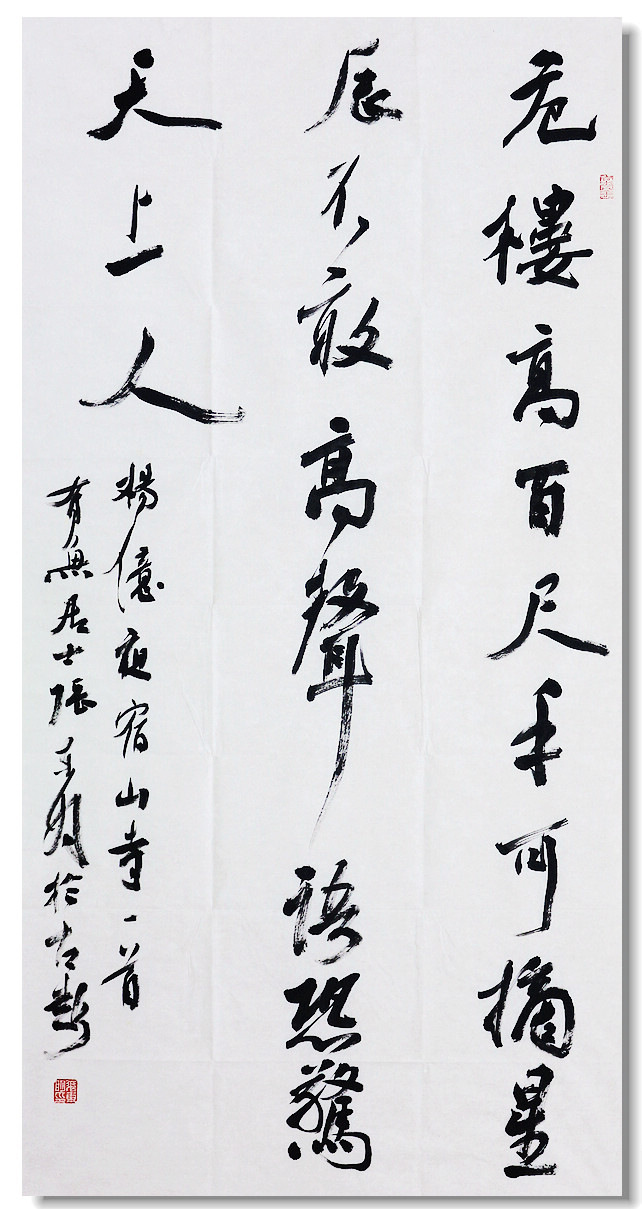 危樓高百尺手可摘星
辰不敢高聲語恐驚
天上人
楊億夜宿山寺一首
有無居士張